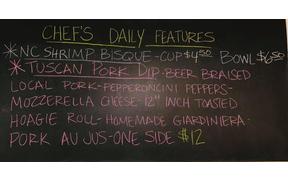 CHEF'S DAILY FEATURES
* NC SHRIMP BISQUE - CUP $4.50 BOWL $6.50
* TUSCAN PORK DIP - BEER BRAISED
LOCAL PORK - PEPPERONCINI PEPPERS -
MOZZERELLA CHEESE - 12" INCH TOASTED
HOAGIE ROLL - HOMEMADE GIARDINIERA -
PORK AU JUS - ONE SIDE $12